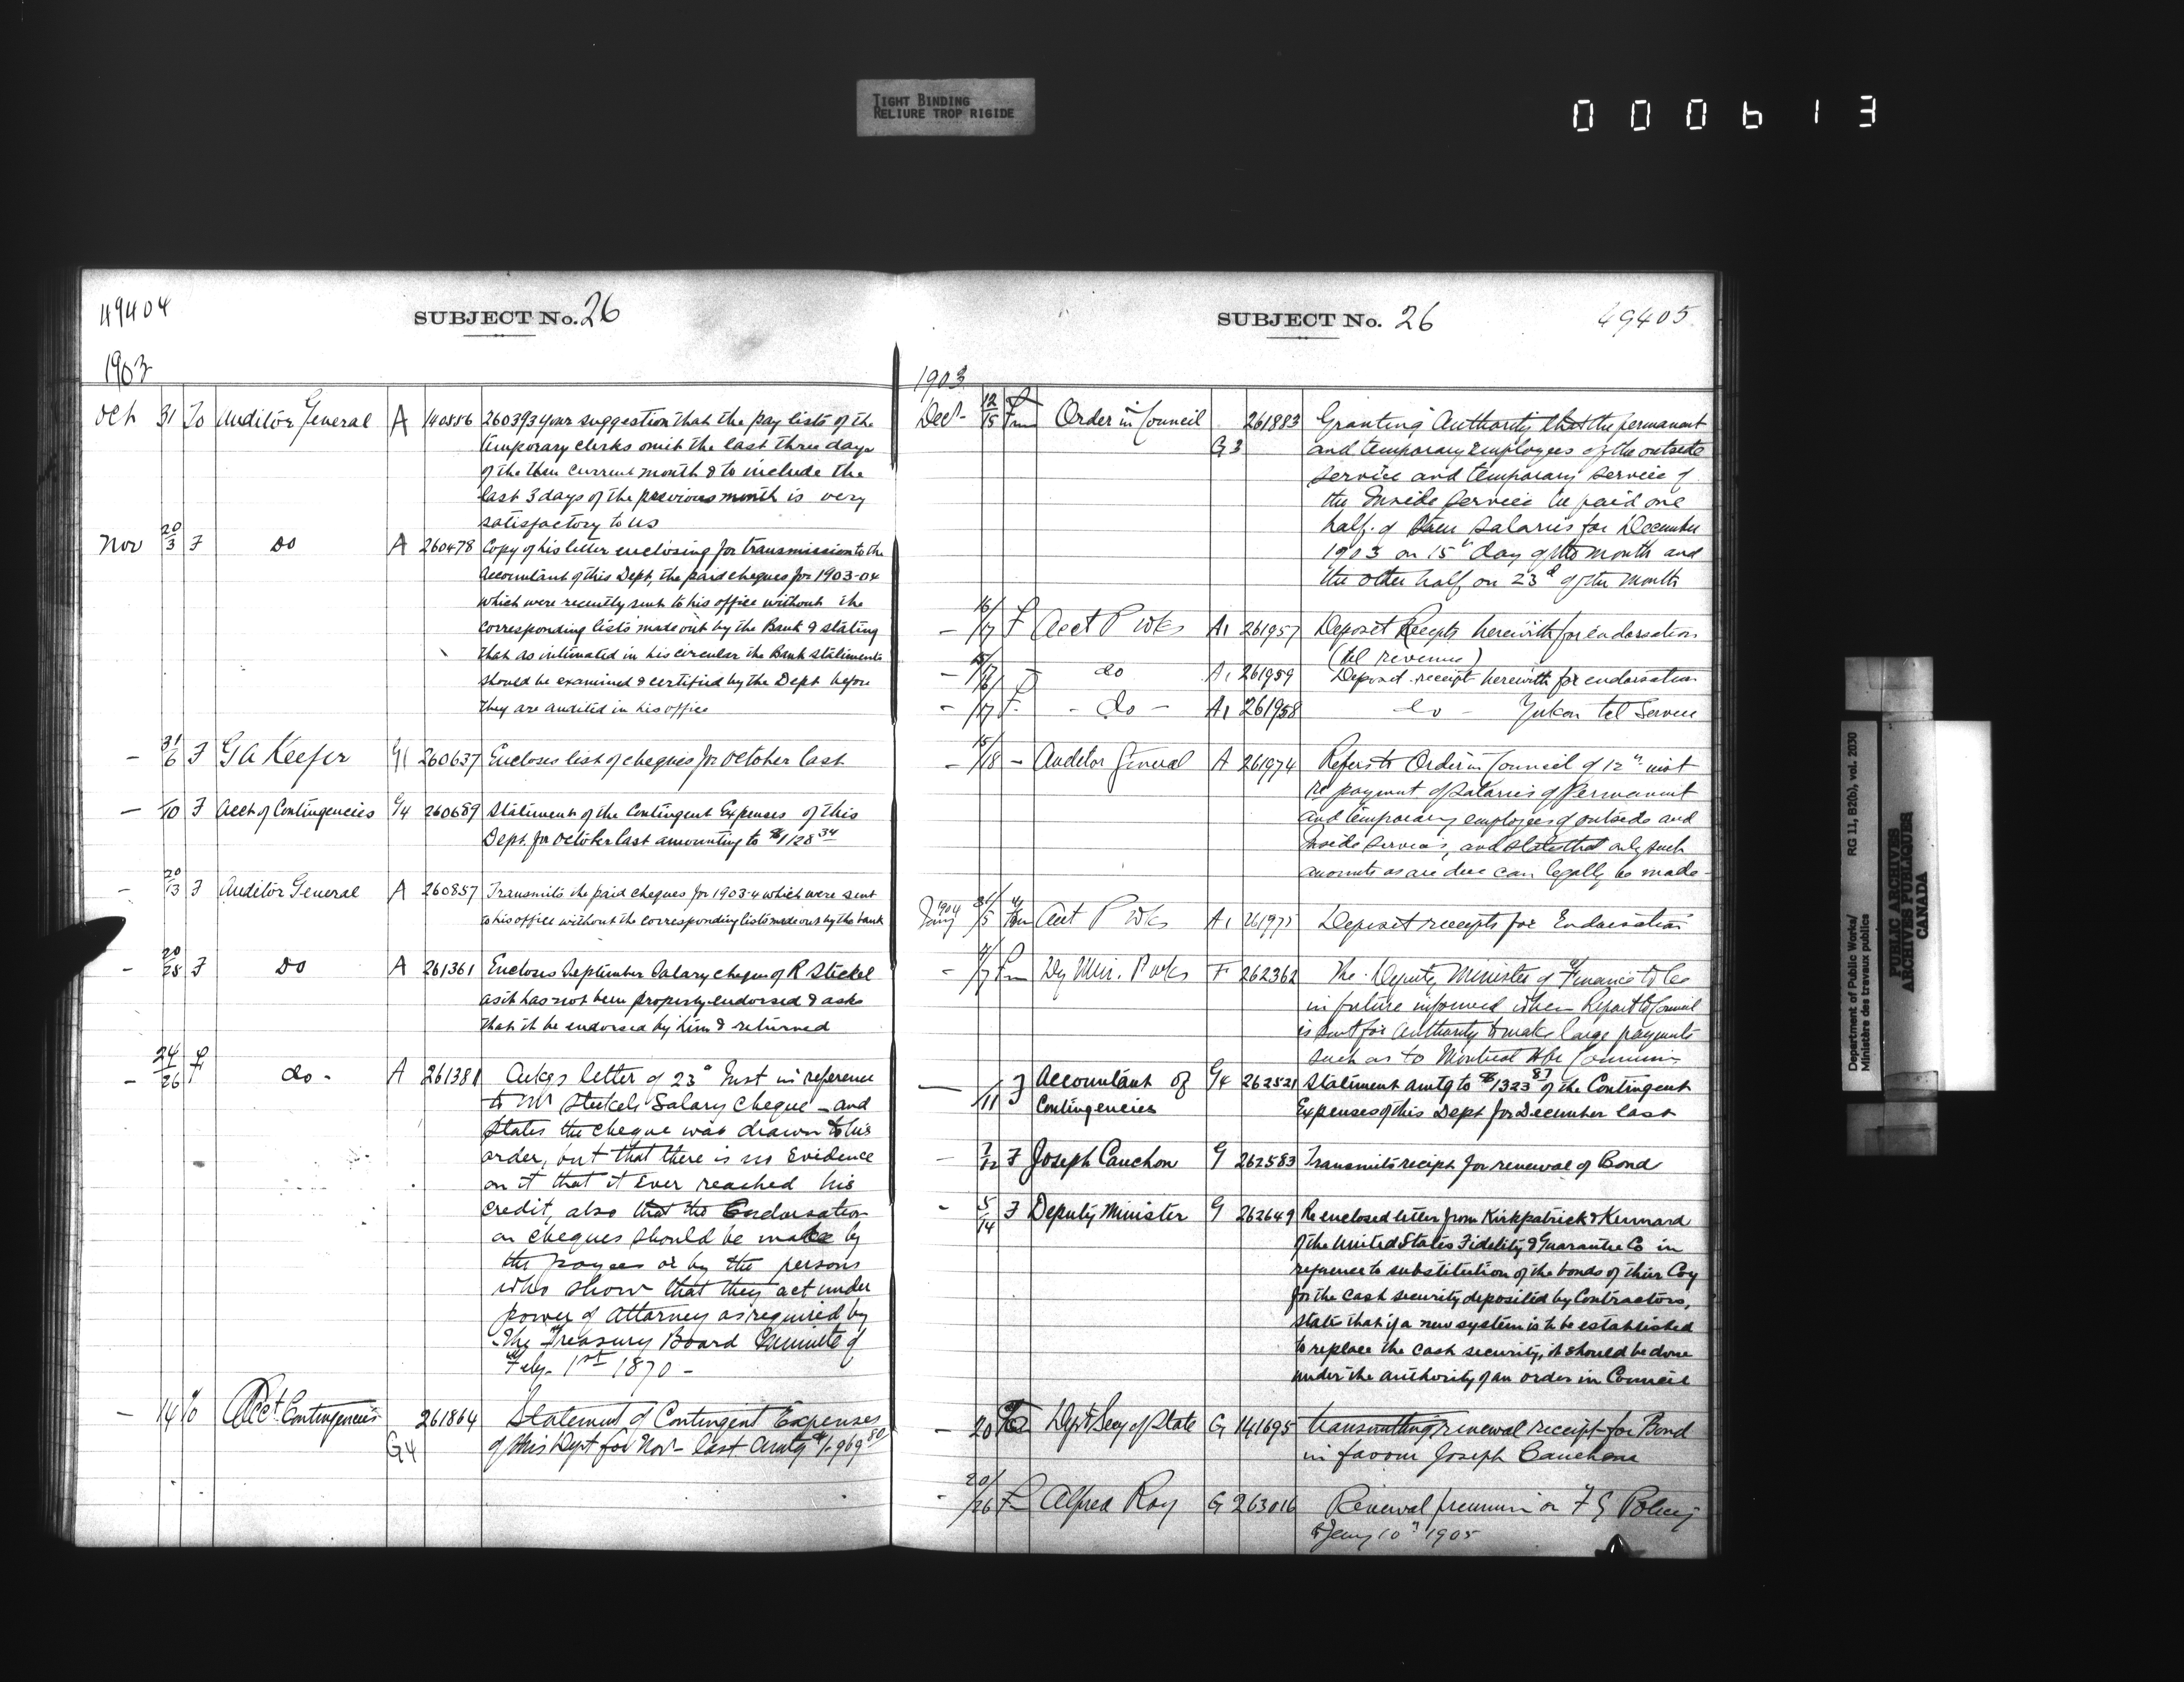 TIGHT BINDING
RELIURE TROP RIGIDE
000613
49404
SUBJECT No. 26
1903
Oct 31 To Auditor General A 140886 260393 your suggestion that the pay lists of the
temporary clerks omit the last three days
of the then current month & to include the
last 3 days of the previous month is very
satisfactory to us
Nov 20/3 F Do A 260478 Copy of his letter enclosing for transmission to the
Accountant of this Dept, the paid cheques for 1903-04
which were recently sent to his office without the
corresponding lists made out by the Bank & stating
that as intimated in his circular the Bank statements
should be examined & certified by the Dept before
they are audited in his office
- 31/6 F G A Keefer G1 260637 Encloses list of cheques for October last
- /10 F Acct of Contingencies G4 260689 Statement of the Contingent Expenses of this
Dept. for October last amounting to $1128 34
- 20/13 F Auditor General A 260857 Transmits the paid cheques for 1903-4 which were sent
to his office without the corresponding lists made out by the bank
- 20/25 F Do A 261361 Encloses September Salary cheque of R Steckel
as it has not been properly endorsed & asks
that it be endorsed by him & returned
- 24/26 F do - A 261381 Ackgs letter of 23d Inst in reference
to Mr Steckels Salary Cheque - and
States the cheque was drawn to his
order, but that there is no Evidence
on it that it Ever reached his
credit, also that the Endorsation
on cheques should be made by
the payees or by the persons
who show that they act under
power of attorney as required by
the Treasury Board minute of
Feby. 1st 1870 -
- 14 To Acct Contingencies G4 261864 Statement of Contingent Expenses
of this Dept for Nov - last amtg $1,969 80
SUBJECT No. 26
49405
1903
Dec 12/15 Fm Order in Council G3 261883 Granting Authority that the permanent
and temporary Employees of the outside
Service and temporary service of
the Inside Service be paid one
half of their salaries for December
1903 on 15th day of the month and
the other half on 23d of the month
- 16/17 F Acct P Wks A1 261957 Deposit Receipts herewith for endorsation
(tel revenue)
- 15/17 F do A1 261959 Deposit receipt herewith for endorsation
- 16/17 F - do - A1 261958 do - Yukon tel Service
- 15/18 - Auditor General A 261974 Refers to Order in Council of 12th inst
re payment of salaries of Permanent
and temporary employees of outside and
Inside Services, and states that only such
amounts as are due can legally be made -
1904
Jany /5 Fm Acct P Wks A1 Deposit receipts for Endorsation
- 4/7 Fm Dy Min. P Wks F 262362 The Deputy Minister of Finance to be
in future informed when Report to Council
is sent for Authority to make large payments
such as to Montreal Hbr Commrs
/11 F Accountant of G4 262521 Statement amtg to $1323 87 of the Contingent
Contingencies Expenses of this Dept for December last
- 7/12 F Joseph Cauchon G 262583 Transmits receipt for renewal of Bond
- 5/14 F Deputy Minister G 262649 Re enclosed letter from Kirkpatrick & Kennard
of the United States Fidelity & Guarantee Co in
reference to substitution of the bonds of their Coy
for the cash security deposited by Contractors,
states that if a new system is to be established
to replace the cash security, it should be done
under the authority of an order in Council
- 20 To Dept Secy of State G 141695 transmitting renewal receipt for Bond
in favour Joseph Cauchon
- 20/26 Fm Alfred Roy G 263016 Renewal premium on F G Policy
to Jany 10th 1905
Department of Public Works/ RG 11, B2(b), vol. 2030
Ministère des travaux publics
PUBLIC ARCHIVES
ARCHIVES PUBLIQUES
CANADA